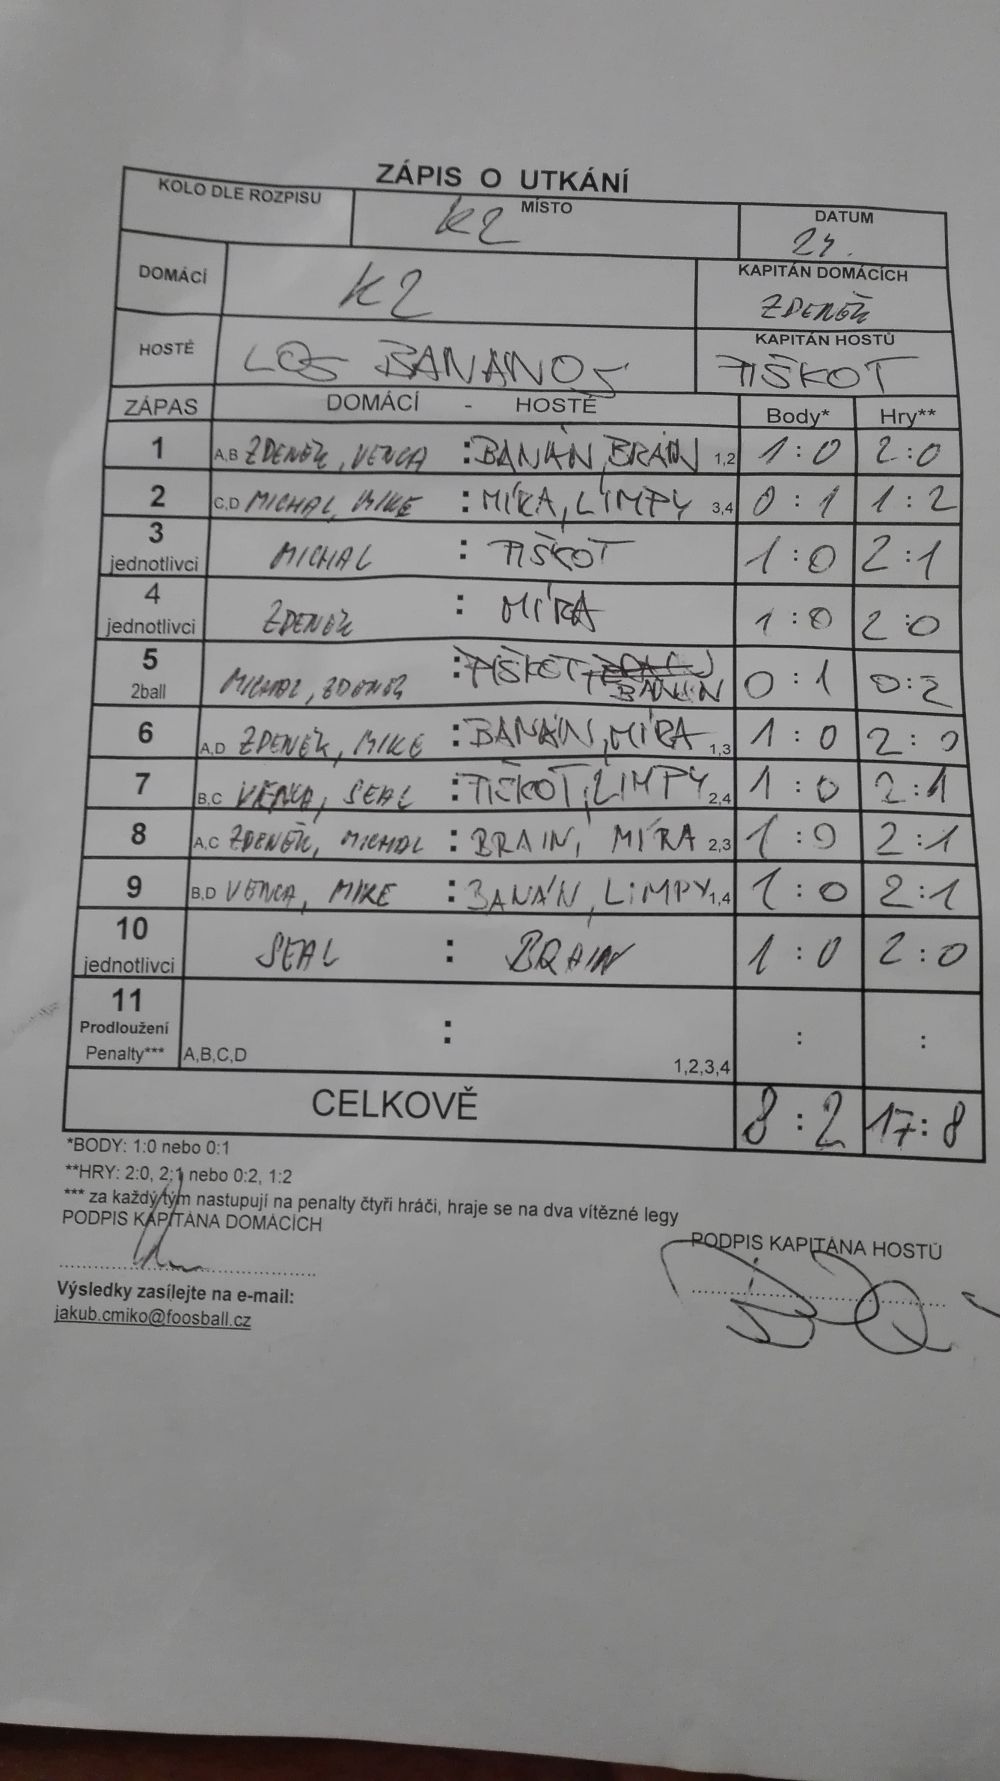 ZÁPIS O UTKÁNÍ
KOLO DLE ROZPISU MÍSTO K2 DATUM 24.
DOMÁCÍ K2 KAPITÁN DOMÁCÍCH ZDENĚK
HOSTÉ LOS BANANOS KAPITÁN HOSTŮ TIŠKOT
ZÁPAS DOMÁCÍ - HOSTÉ Body* Hry**
1 A,B ZDENĚK, VENCA : BANÁN, BRAIN 1,2 1:0 2:0
2 C,D MICHAL, MIKE : MÍRA, LIMPY 3,4 0:1 1:2
3 jednotlivci MICHAL : TIŠKOT 1:0 2:1
4 jednotlivci ZDENĚK : MÍRA 1:0 2:0
5 2ball MICHAL, ZDENĚK : TIŠKOT, BANÁN 0:1 0:2
6 A,D ZDENĚK, MIKE : BANÁN, MÍRA 1,3 1:0 2:0
7 B,C VENCA, SEAL : TIŠKOT, LIMPY 2,4 1:0 2:1
8 A,C ZDENĚK, MICHAL : BRAIN, MÍRA 2,3 1:0 2:1
9 B,D VENCA, MIKE : BANÁN, LIMPY 1,4 1:0 2:1
10 jednotlivci SEAL : BRAIN 1:0 2:0
11 Prodloužení Penalty*** A,B,C,D : 1,2,3,4 : :
CELKOVĚ 8:2 17:8
*BODY: 1:0 nebo 0:1
**HRY: 2:0, 2:1 nebo 0:2, 1:2
*** za každý tým nastupují na penalty čtyři hráči, hraje se na dva vítězné legy
PODPIS KAPITÁNA DOMÁCÍCH
PODPIS KAPITÁNA HOSTŮ
Výsledky zasílejte na e-mail:
jakub.cmiko@foosball.cz